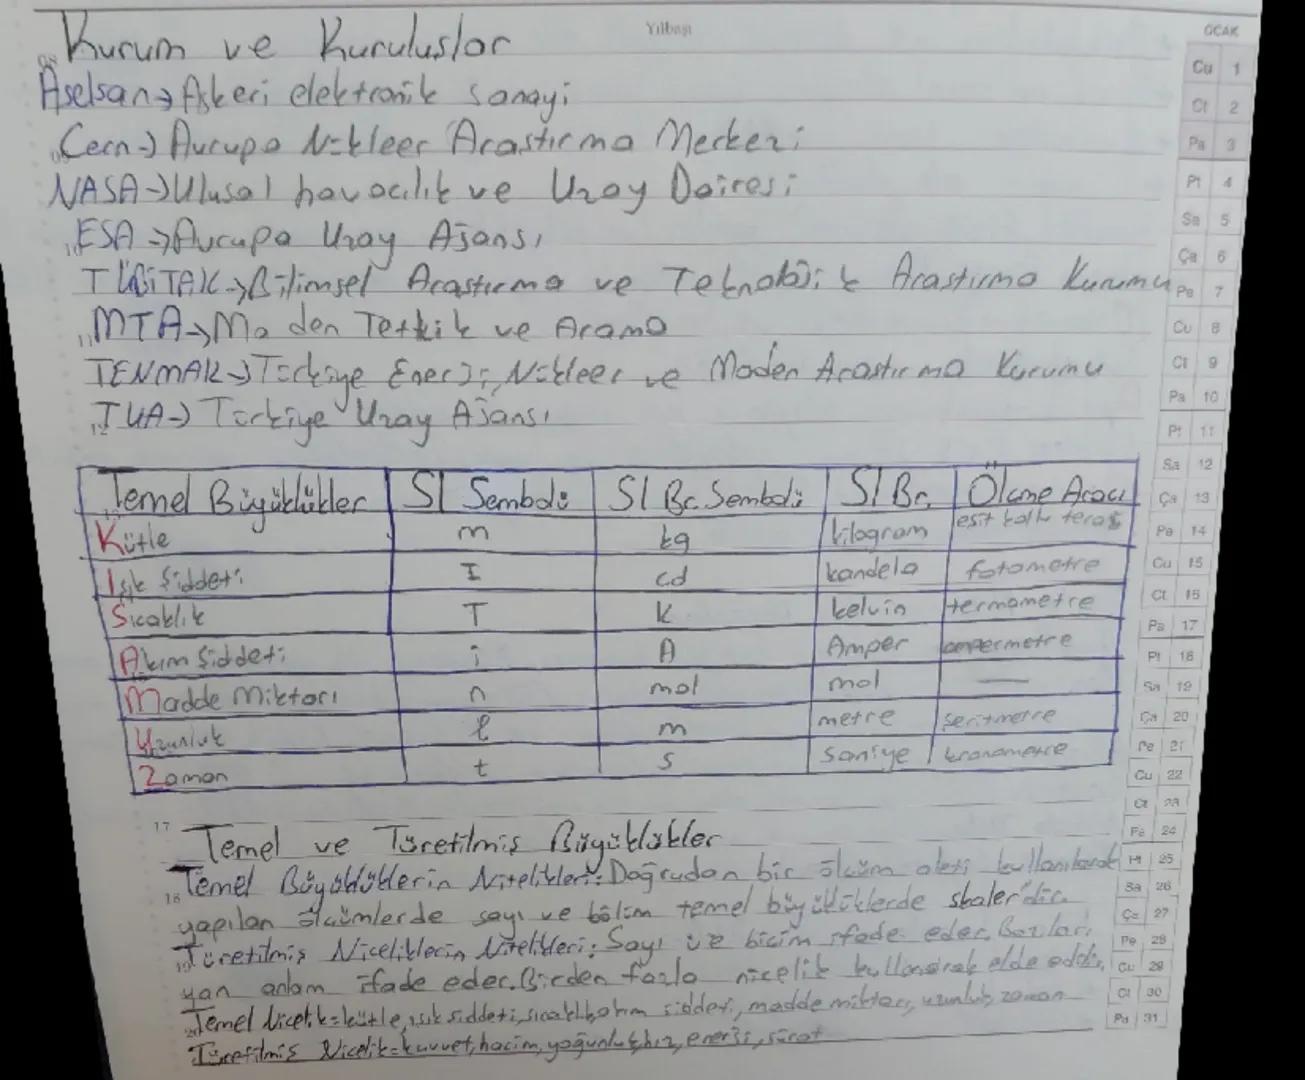 Yılbaşı
OCAK
Kurum ve Kuruluşlar
Aselsan→Askeri elektronik sanayi
Cern→Avrupa Nükleer Arastırma Merkezi
NASA→Ulusal havacılık ve Uzay Dairesi
ESA→Avrupa Uzay Ajansı
TÜBİTAK→Bilimsel Arastırma ve Teknolojik Arastırma Kurumu
MTA→Maden Tetkik ve Arama
TENMAK→Türkiye Enerji, Nükleer ve Maden Arastırma Kurumu
TUA→Türkiye Uzay Ajansı
Temel Büyüklükler SI Sembolü SI Br. Sembolü SI Br. Ölçme Aracı
Kütle m kg kilogram esit kollu terazi
Işık Şiddeti I cd kandela fotometre
Sıcaklık T K kelvin termometre
Akım Şiddeti i A Amper ampermetre
Madde Miktarı n mol mol —
Uzunluk l m metre şeritmetre
Zaman t s saniye kronometre
17 Temel ve Türetilmiş Büyüklükler
18 Temel Büyüklüklerin Nitelikleri: Doğrudan bir ölçüm aleti kullanılarak
yapılan ölçümlerde sayı ve bölüm temel büyüklüklerde skalerdir.
Türetilmiş Niceliklerin Nitelikleri: Sayı ve bicim ifade eder. Bazıları
yan anlam ifade eder. Birden fazla nicelik kullanılarak elde edilir.
Temel Nicelik=kütle, ısık siddeti, sıcaklık, akım siddeti, madde miktarı, uzunluk, zaman
Türetilmiş Nicelik=kuvvet, hacim, yoğunluk, hız, enerji, sürat
Cu 1
Ct 2
Pa 3
Pt 4
Sa 5
Ça 6
Pe 7
Cu 8
Ct 9
Pa 10
Pt 11
Sa 12
Ça 13
Pe 14
Cu 15
Ct 16
Pa 17
Pt 18
Sa 19
Ça 20
Pe 21
Cu 22
Ct 23
Pa 24
Pt 25
Sa 26
Ça 27
Pe 28
Cu 29
Ct 30
Pa 31